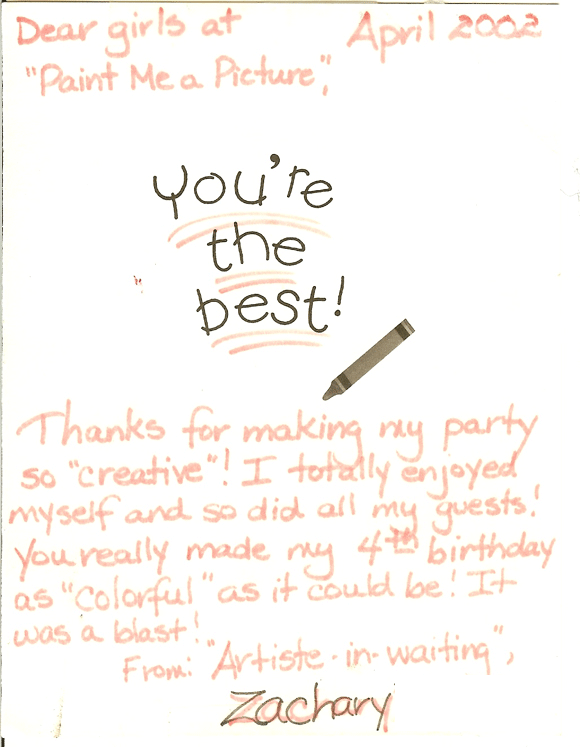 Dear girls at April 2002
"Paint Me a Picture",
you're
the
best!
Thanks for making my party
so "creative"! I totally enjoyed
myself and so did all my guests!
You really made my 4th birthday
as "colorful" as it could be! It
was a blast!
From: "Artiste-in-waiting",
Zachary